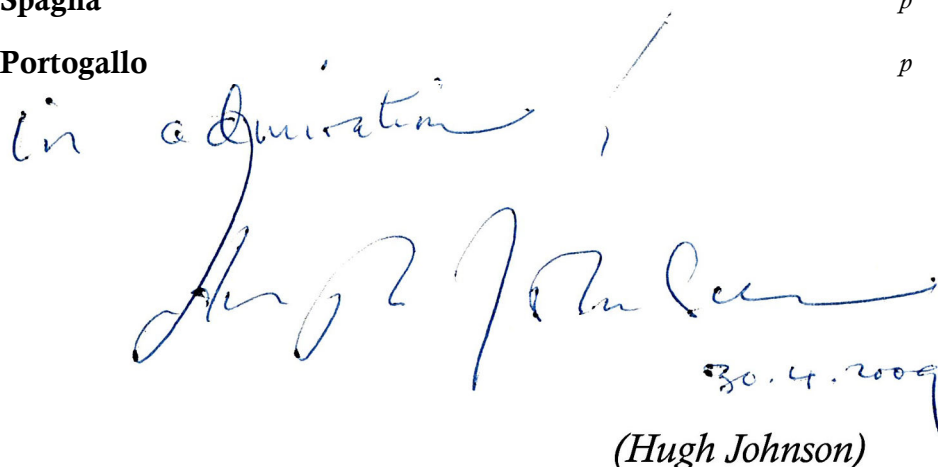 Spagna p
Portogallo p
in admiration!
Hugh Johnson
30.4.2009
(Hugh Johnson)